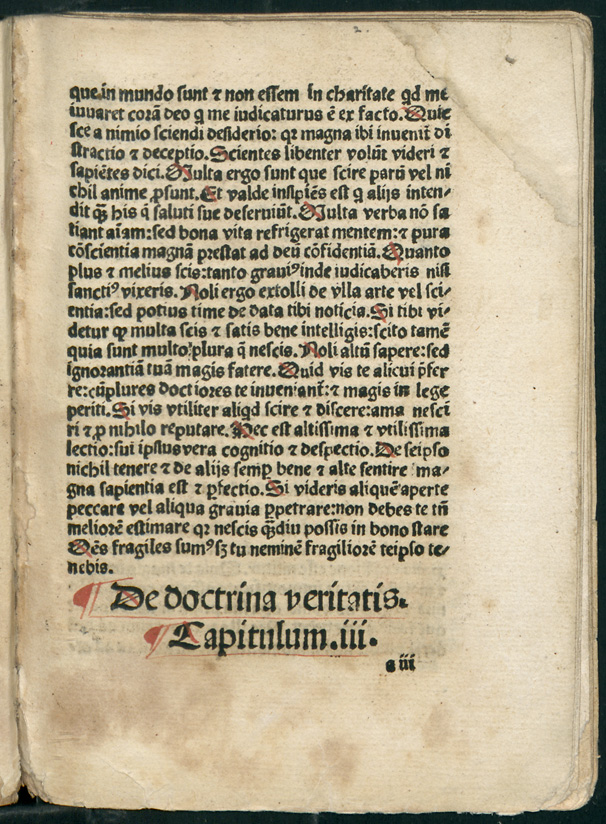 que in mundo sunt ⁊ non essem in charitate qd me
iuuaret corā deo q me iudicaturus ē ex facto. Quie
sce a nimio sciendi desiderio: qꝛ magna ibi inuenit̄ di
stractio ⁊ deceptio. Scientes libenter volūt videri ⁊
sapiētes dici. Multa ergo sunt que scire parū vel ni
chil anime ꝓsunt. Et valde insipiēs est q̇ alijs inten⸗
dit qꝫ̄ his q̄ saluti sue deseruiūt. Multa verba nō sa
tiant aīam: sed bona vita refrigerat mentem: ⁊ pura
cōscientia magnā prestat ad deū cōfidentiā. Quanto
plus ⁊ melius scis: tanto grauiꝰ inde iudicaberis nisi
sanctiꝰ vixeris. Noli ergo extolli de vlla arte vel sci⸗
entia: sed potius time de data tibi noticia. Si tibi vi⸗
detur ꝙ multa scis ⁊ satis bene intelligis: scito tamē
quia sunt multo plura q̄ nescis. Noli altū sapere: sed
ignorantiā tuā magis fatere. Quid vis te alicui p̄fer
re: cū plures doctiores te inueniant̄: ⁊ magis in lege
periti. Si vis vtiliter aliqd scire ⁊ discere: ama nesci
ri ⁊ ꝓ nihilo reputare. Nec est altissima ⁊ vtilissima
lectio: sui ipsius vera cognitio ⁊ despectio. De seipso
nichil tenere ⁊ de alijs semꝑ bene ⁊ alte sentire ma⸗
gna sapientia est ⁊ ꝑfectio. Si videris aliquē aperte
peccare vel aliqua grauia ꝑpetrare: non debes te tn̄
meliorē estimare qꝛ nescis qꝫ̄diu possis in bono stare
Oēs fragiles sumꝰ sꝫ tu neminē fragiliorē teipso te⸗
nebis.
¶ De doctrina veritatis.
¶ Capitulum .iii.
a iii